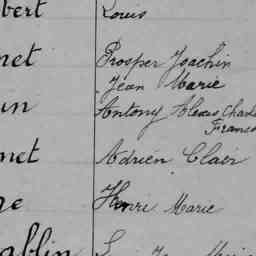 bert Louis
net Prosper Joachin
Jean Marie
un Antony Alexis Charles
Franco
net Adrien Clair
ge Henri Marie
ablin